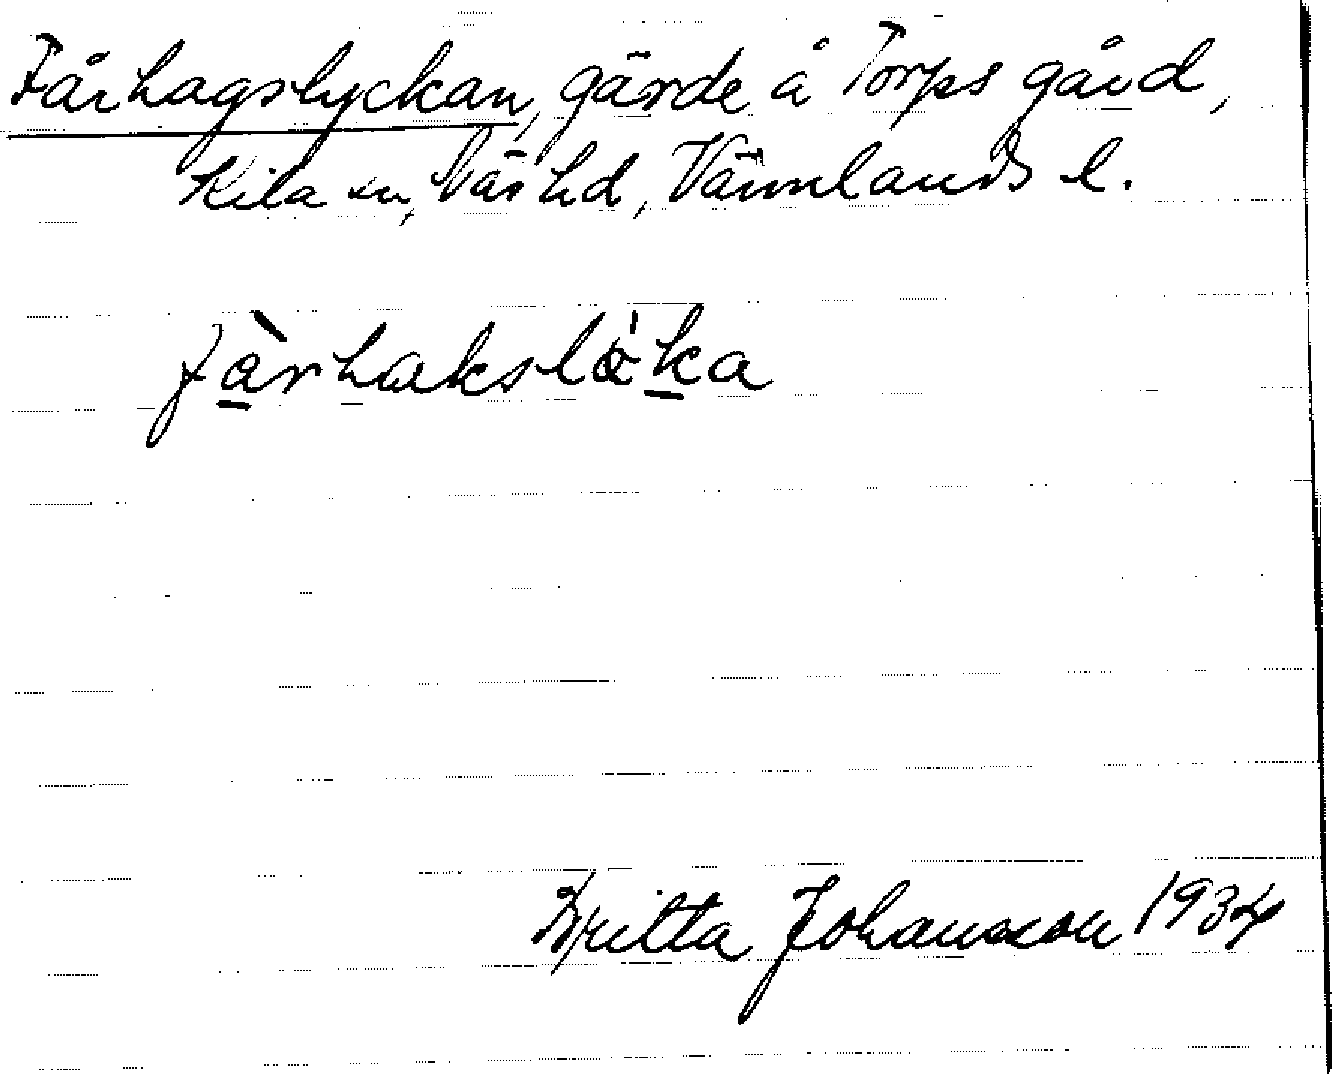 Fårhagslyckan, gärde å Torps gård,
Kila sn, Näs hd, Värmlands l.
fårhakslöka
Britta Johansson 1934